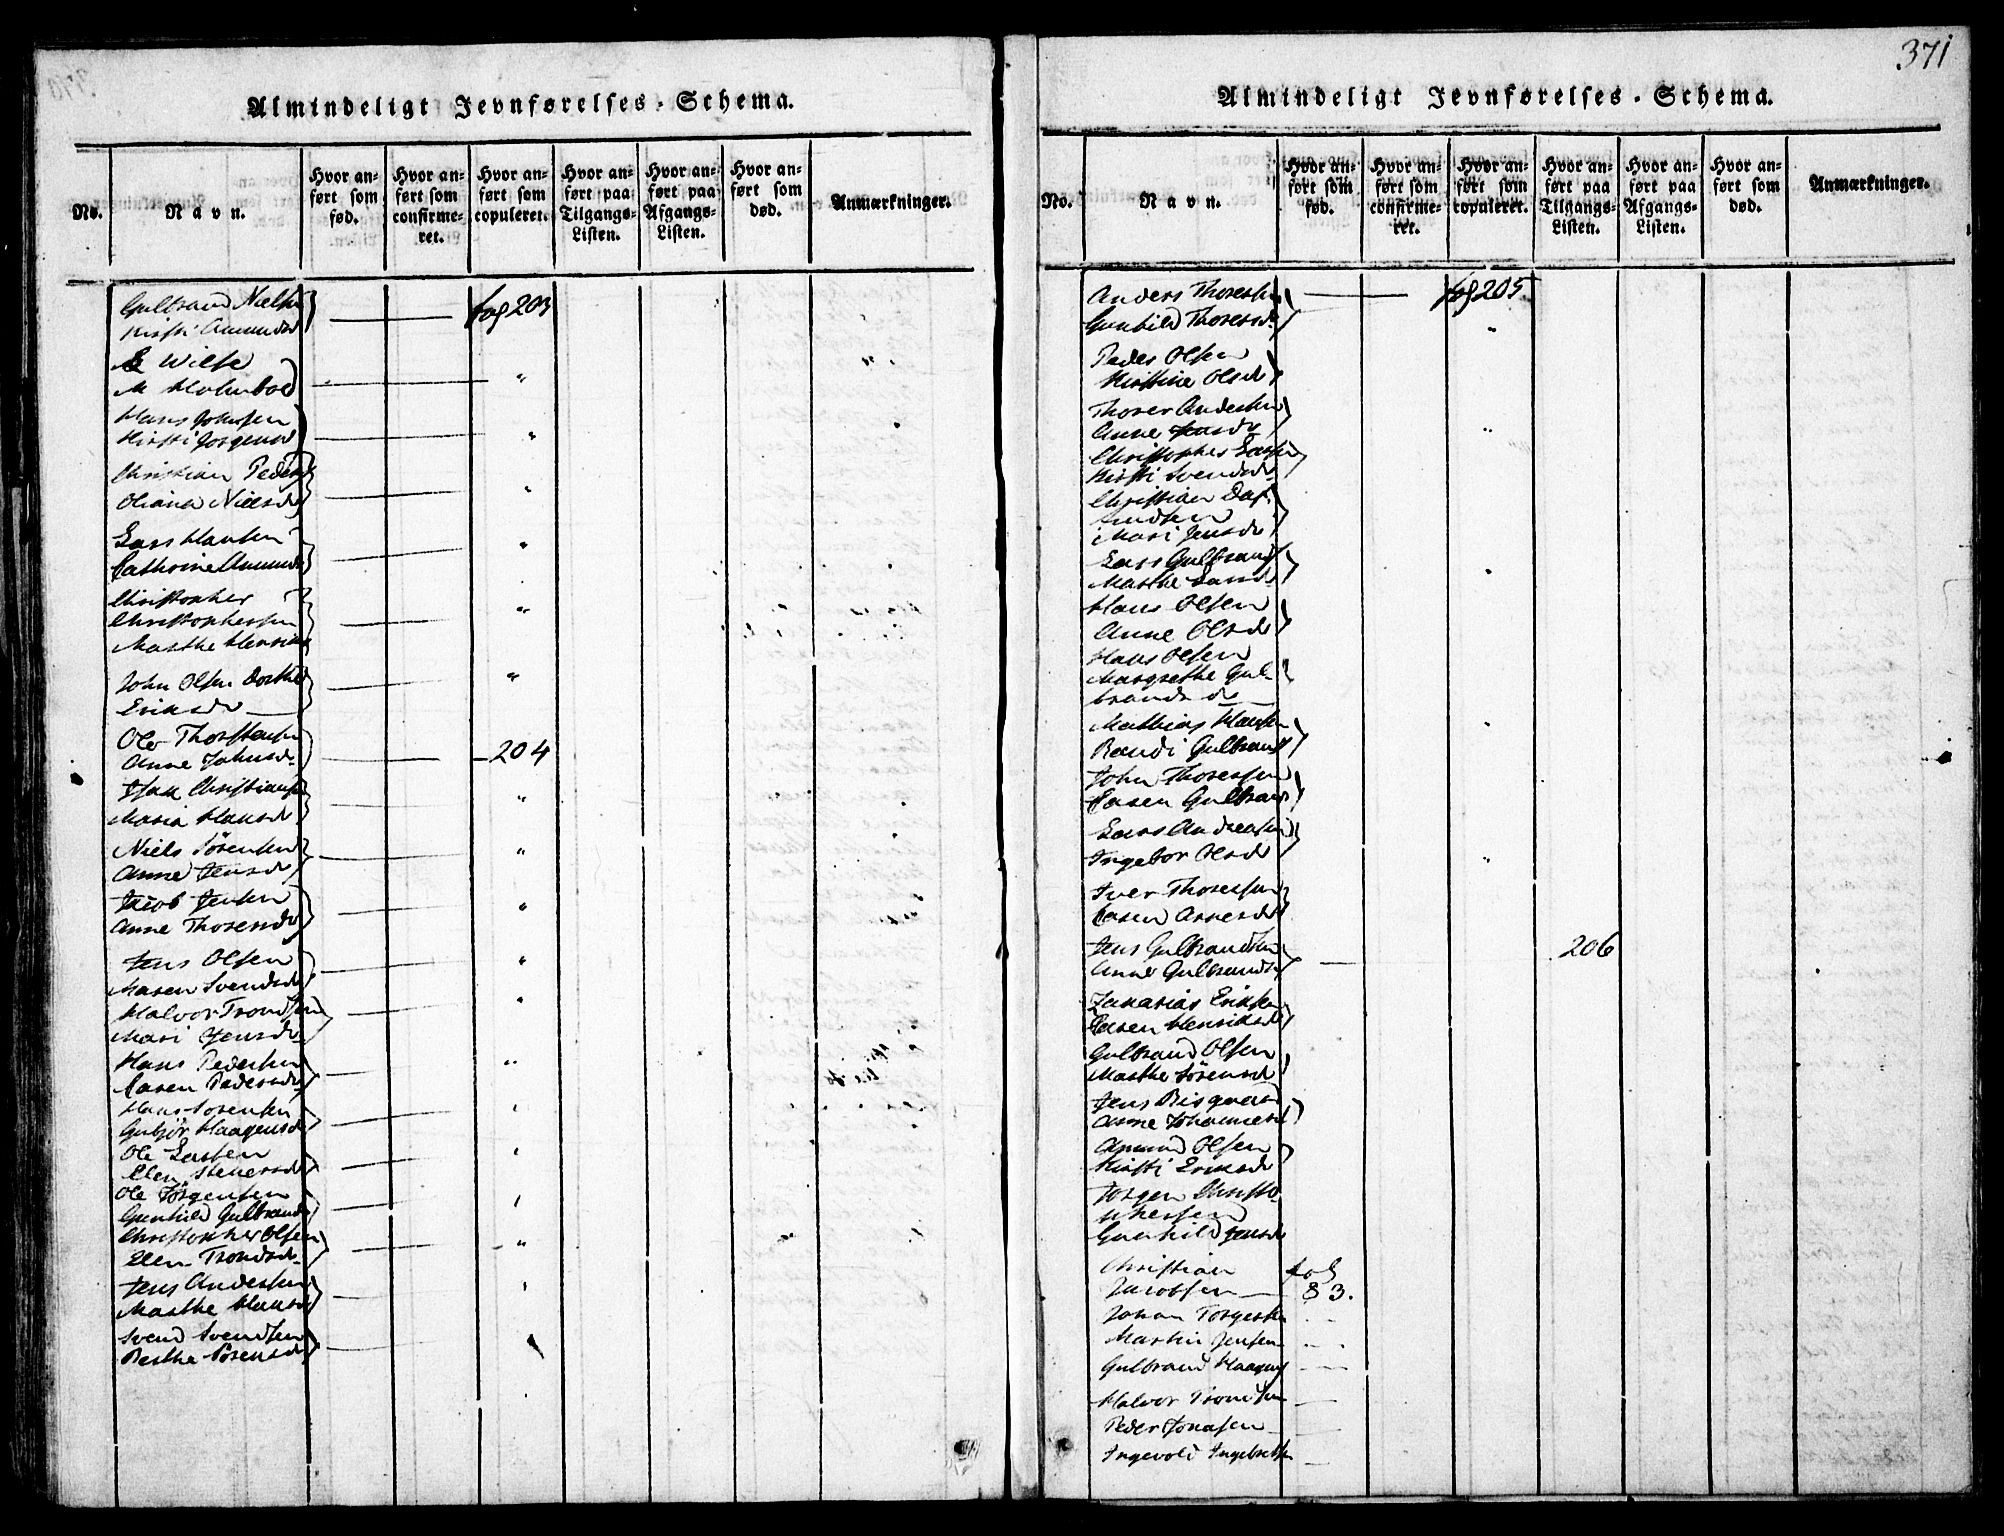 371
Almindeligt Jevnførelses-Schema.
No.
Navn.
Hvor anført som fød.
Hvor anført som confirmeret.
Hvor anført som copuleret.
Hvor anført paa Tilgangs-Listen.
Hvor anført paa Afgangs-Listen.
Hvor anført som død.
Anmærkninger.
Gulbrand Nielsen
Kirsti Amundsd fog 203
Wilse
M Holmboe "
Hans Johnsen
Kirsti Jørgensd "
Christian Peders
Oliana Nielsd "
Lars Hansen
Cathrine Amunds "
Christopher
Christophersen "
Marthe Henriks
John Olsen Dorthe "
Eriksd
Ole Thorstensen
Anne Johnsd 204
Isak Christiansen "
Maria Hansd
Niels Sørensen "
Anne Jensd
Jacob Jensen "
Anne Thoresd
Jens Olsen "
Maren Svendsd
Halvor Trondsen "
Mari Jensd
Hans Pedersen "
Karen Pedersd
Hans Sørensen "
Gubjør Haagensd
Ole Larsen "
Elen Steversd
Ole Jørgensen "
Gunhild Gulbrands
Christopher Olsen "
Elen Trondsd
Jens Andersen "
Marthe Hansd
Svend Svendsen "
Berthe Sørensd
Almindeligt Jevnførelses-Schema.
No.
Navn.
Hvor anført som fød.
Hvor anført som confirmeret.
Hvor anført som copuleret.
Hvor anført paa Tilgangs-Listen.
Hvor anført paa Afgangs-Listen.
Hvor anført som død.
Anmærkninger.
Anders Thoresen fog 205
Gunhild Thoresd "
Peder Olsen
Kirstine Olsd
Thorer Andersen
Anne Jensd "
Christopher Larsen
Kirsti Svendsd
Christian
Knudsen
Mari Jensd
Lars Gulbrands
Marthe Larsd "
Hans Olsen
Anne Olsd
Hans Olsen
Margrethe Gul
brands d
Mathias Hansen "
Randi Gulbrands
John Thoresen
Karen Gulbrands
Lars Andersen
Ingebor Olsd "
Iver Thoresen
Karen Arnesd
Jens Gulbrandsen 206
Anne Gulbrandsd
Zakarias Eriksen
Karen Henriksd
Gulbrand Olsen
Marthe Sørensd
Jens
Anne Johannesd
Amund Olsen
Kirsti Eriksd
Jørgen Christo
phersen
Gunhild Jensd
Christian fol
Jacobsen 83.
Johan Torgersen
Martin Jensen
Gulbrand Haagens
Halvor Trondsen
Peder Jonasen
Ingevold Ingebretsen